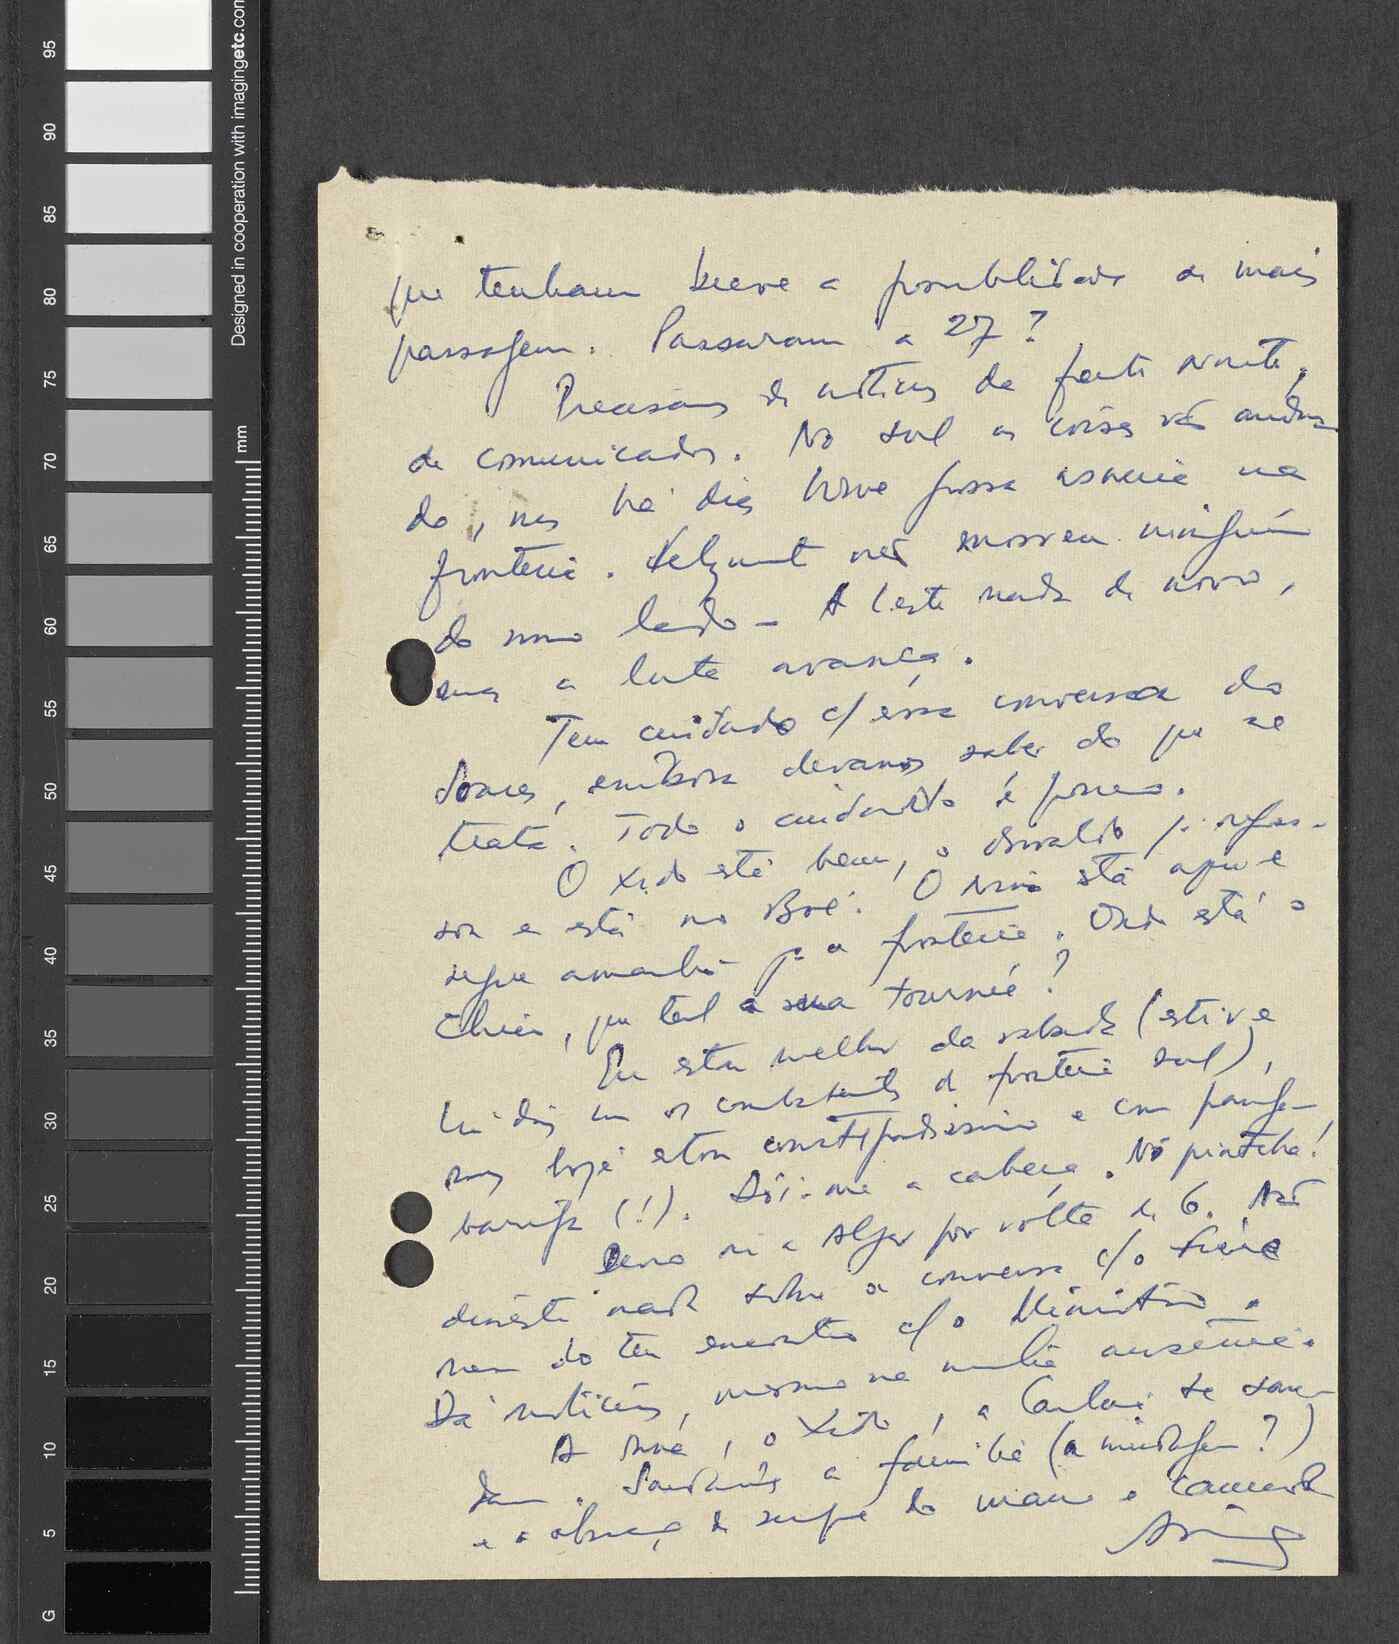 que tenham breve a possibilidade de mais
passagem. Passaram a 27?
Precisamos de notícias da frente norte,
de comunicados. No sul as coisas vão andan-
do, mas há dias houve grossa asneira na
fronteira. Felizmente não morreu ninguém
do nosso lado - A Leste nada de novo,
mas a luta avança.
Tem cuidado c/ essa conversa do
Soares, embora devamos saber do que se
trata. Todo o cuidado é pouco.
O Xido está bem, o Osvaldo já regres-
sou e está no Boé. O Nino está aqui e
segue amanhã p. a fronteira. Onde está o
Chico, que tal a sua tournée?
Eu estou melhor da saúde (estive
há dias com os combatentes da fronteira sul),
mas hoje estou constipadíssimo e com
(!). Dói-me a cabeça. Nô pintcha!
Devo ir a Alger por volta de 6. Não
disseste nada sobre a conversa c/o
nem do teu encontro c/o Ministro.
Dá notícias, mesmo na minha ausência.
A Ana, o Xido, a te saú-
dam. Saudações à família (a ?)
e o abraço de sempre do mano e camarada
95
90
85
80
75
70
65
60
55
50
45
40
35
30
25
20
15
10
5
G
mm
Designed in cooperation with imagingetc.com